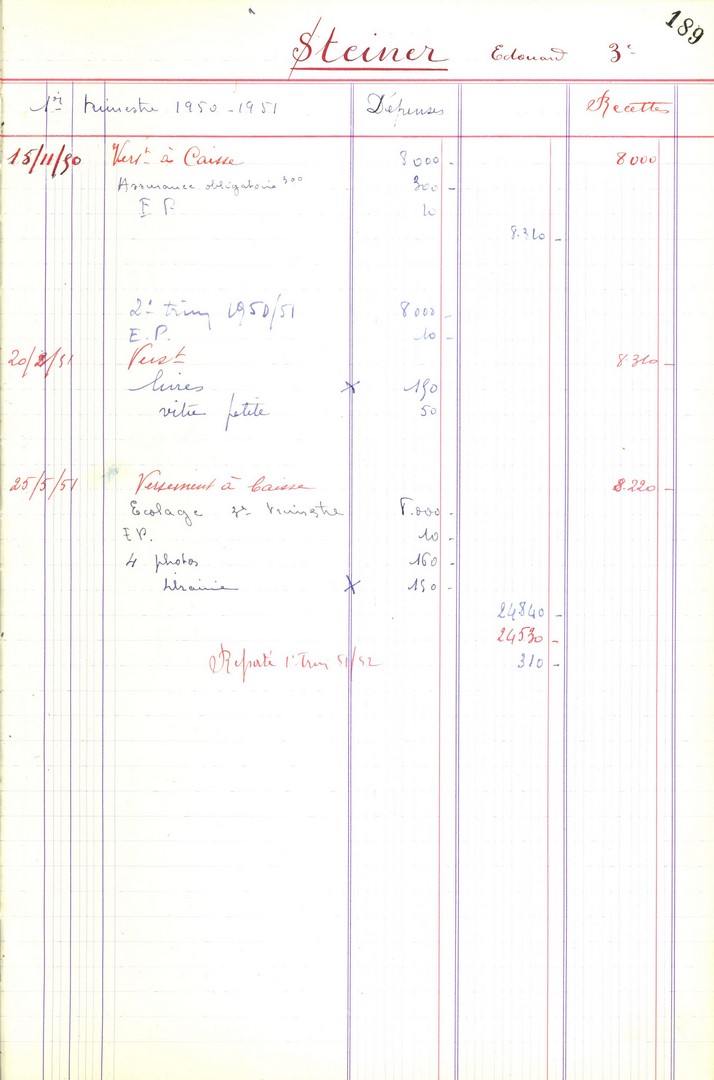 189
Steiner Edouard 3e
1er trimestre 1950-1951 Dépenses Recettes
15/11/50 Verst à Caisse 8000 - 8000
Assurance obligatoire 300 300 -
E P. 10
8.310 -
2e trim 1950/51 8000 -
E.P. 10 -
20/2/51 Verst 8310 -
livres x 150
vitre petite 50
25/5/51 Versement à Caisse 8.220 -
Ecolage 3e trimestre 8.000 -
E P. 10 -
4 photos 160 -
librairie x 150 -
24840 -
24530 -
Reporté 1e Trim 51/52 310 -